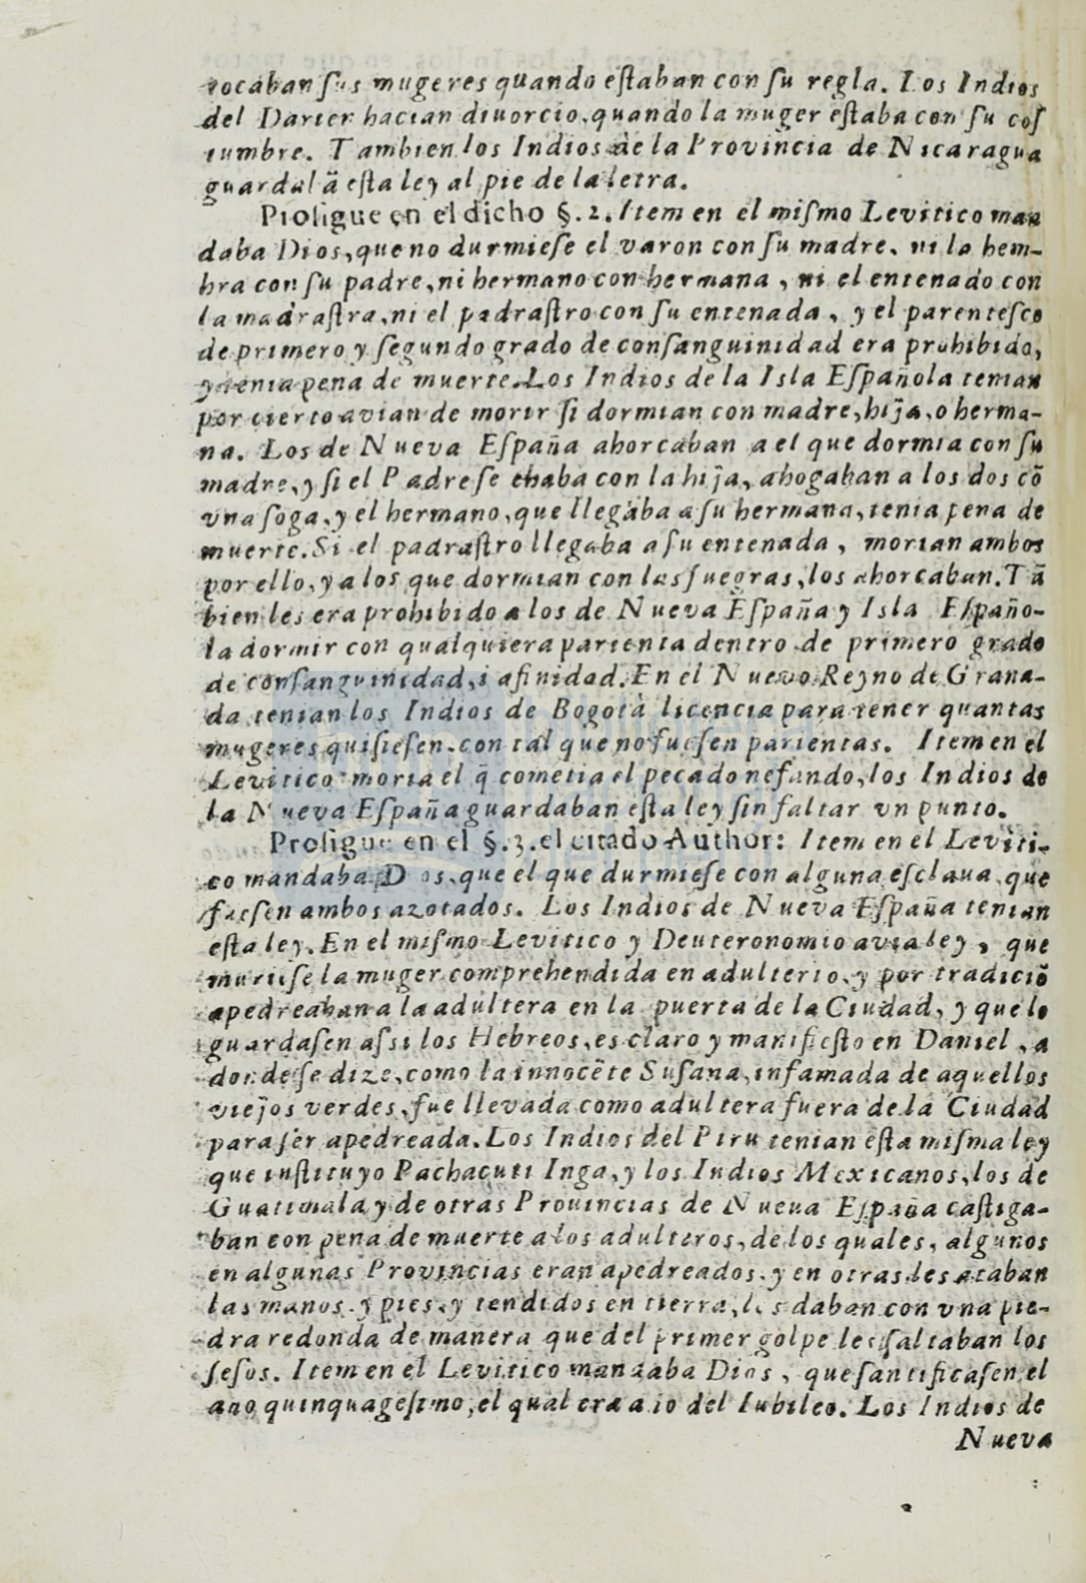 tocaban ſus mugeres quando eſtaban con ſu regla. Los Indios
del Darien hacian diuorcio, quando la muger eſtaba con ſu coſ
tumbre. Tambien los Indios de la Provincia de Nicaragua
guardabã eſta ley al pie de la letra.
Proſigue en el dicho §. 2. Item en el miſmo Levitico man
daba Dios, que no durmieſe el varon con ſu madre, ni la hem-
bra con ſu padre, ni hermano con hermana, ni el entenado con
la madraſtra, ni el padraſtro con ſu entenada, y el parenteſco
de primero y ſegundo grado de conſanguinidad era prohibido,
y tenia pena de muerte. Los Indios de la Isla Eſpañola tenian
por cierto avian de morir ſi dormian con madre, hija, o herma-
na. Los de Nueva Eſpaña ahorcaban a el que dormia con ſu
madre, y ſi el Padre ſe echaba con la hija, ahogaban a los dos cõ
vna ſoga, y el hermano, que llegaba a ſu hermana, tenia pena de
muerte. Si el padraſtro llegaba a ſu entenada, morian ambos
por ello, y a los que dormian con las ſuegras, los ahorcaban. Tã
bien les era prohibido a los de Nueva Eſpaña y Isla Eſpaño-
la dormir con qualquiera parienta dentro de primero grado
de conſanguinidad, i afinidad. En el Nuevo Reyno de Grana-
da tenian los Indios de Bogotà licencia para tener quantas
mugeres quiſieſen, con tal que no fueſen parientas. Item en el
Levitico moria el q̃ cometia el pecado nefando, los Indios de
la Nueva Eſpaña guardaban eſta ley ſin faltar vn punto.
Proſigue en el §. 3. el citado Author: Item en el Leviti-
co mandaba Dios, que el que durmieſe con alguna eſclaua, que
fueſen ambos azotados. Los Indios de Nueva Eſpaña tenian
eſta ley. En el miſmo Levitico y Deuteronomio avia ley, que
murieſe la muger comprehendida en adulterio, y por tradiciõ
apedreaban a la adultera en la puerta de la Ciudad, y que lo
guardaſen aſsi los Hebreos, es claro y manifieſto en Daniel, a
donde ſe dize, como la innocẽte Suſana, infamada de aquellos
viejos verdes, fue llevada como adultera fuera de la Ciudad
para ſer apedreada. Los Indios del Piru tenian eſta miſma ley
que inſtituyo Pachacuti Inga, y los Indios Mexicanos, los de
Guatimala y de otras Prouincias de Nueua Eſpaña caſtiga-
ban con pena de muerte a los adulteros, de los quales, algunos
en algunas Provincias eran apedreados, y en otras les ataban
las manos, y pies, y tendidos en tierra, les daban con vna pie-
dra redonda de manera que del primer golpe les ſaltaban los
ſeſos. Item en el Levitico mandaba Dios, que ſantificaſen el
año quinquageſimo, el qual era año del Iubileo. Los Indios de
Nueva